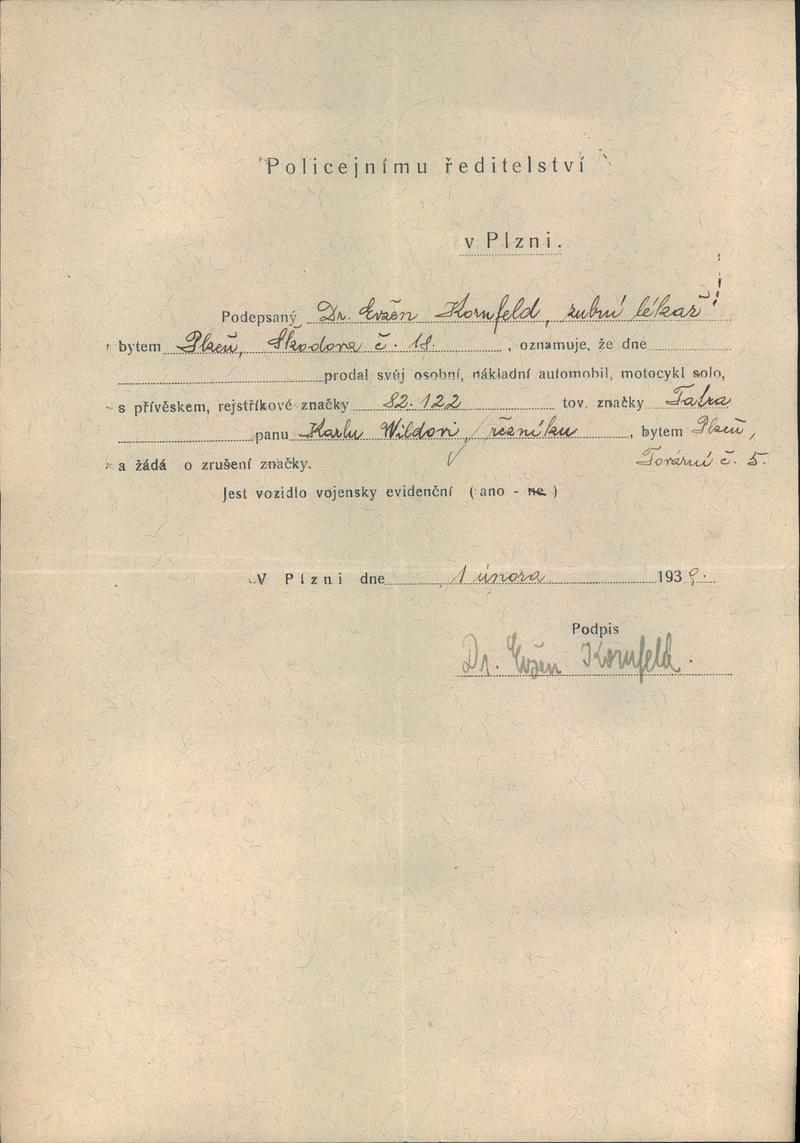 Policejnímu ředitelství
v Plzni.
Podepsaný Dr. Evžen Kornfeld, zubní lékař
bytem Plzeň, Škodova č. 18. , oznamuje, že dne
prodal svůj osobní, nákladní automobil, motocykl solo,
s přívěskem, rejstříkové značky 82.122 tov. značky Tatra
panu Karlu Wildovi, řezníku , bytem Plzeň,
a žádá o zrušení značky. Tovární č. 5.
Jest vozidlo vojensky evidenční ( ano - ne )
V Plzni dne 1 února 1939.
Podpis
Dr. Evžen Kornfeld.